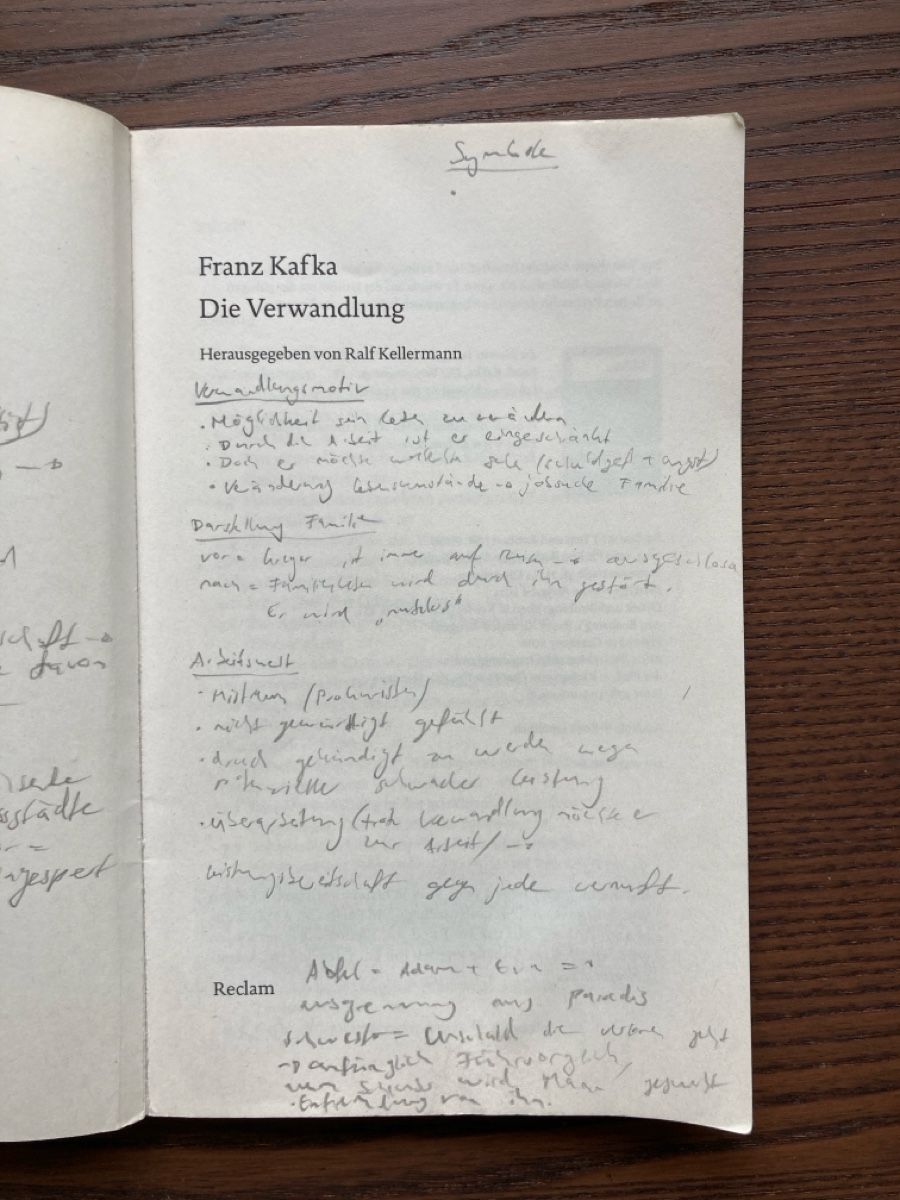 Symbole
Franz Kafka
Die Verwandlung
Herausgegeben von Ralf Kellermann
Verwandlungsmotiv
· Möglichkeit sein Leben zu verändern
· Durch die Arbeit ist er eingeschänkt
· Doch er möchte weiterhin (schuldgef + angst)
· Veränderung Lebensumstände → jobsuche Familie
Darstellung Familie
vor = ist immer auf → ausgeschlossen
nach = Familienleben wird durch ihn gestört.
Er wird „nutzlos“
Arbeitswelt
· Mistraun (Prokuristen)
· nicht gewürdigt gefühlt
· druck gekündigt zu werden wegen
schwacher Leistung
· überarbeitung (trotz Verwandlung möchte er
zur Arbeit) →
Leistungsbereitschaft gegen jede vernuft.
Reclam
Apfel = Adam + Eva =
ausgrenzung aus Paradis
schwester = Unschuld die verloren geht
→ anfänglich Führsorglich,
wird gespielt
· Entfremdung von ihm.
schaft →
davon
sstädte
r =
ngesperrt